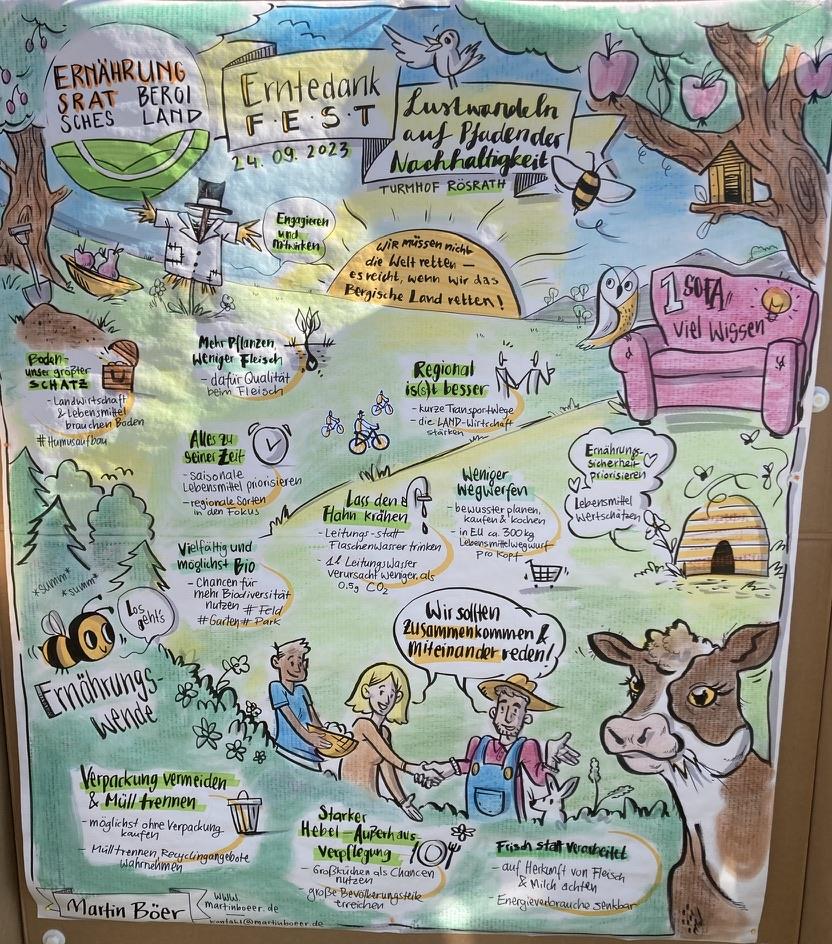 ERNÄHRUNG
SRAT BERGI
SCHES LAND
Erntedank
F·E·S·T
24. 09. 2023
Lustwandeln
auf Pfaden der
Nachhaltigkeit
TURMHOF RÖSRATH
Engagieren
und
mitwirken
Wir müssen nicht
die Welt retten –
es reicht, wenn wir das
Bergische Land retten!
1 SOFA,,
viel Wissen
Boden-
unser größter
SCHATZ
- Landwirtschaft
& Lebensmittel
brauchen Boden
#Humusaufbau
Mehr Pflanzen,
Weniger Fleisch
- dafür Qualität
beim Fleisch
Regional
is(s)t besser
- kurze Transportwege
- die LAND-Wirtschaft
stärken
Alles zu
seiner Zeit
- saisonale
Lebensmittel priorisieren
- regionale Sorten
in den Fokus
Lass den
Hahn krähen
- Leitungs-statt
Flaschenwasser trinken
1l Leitungswasser
verursacht weniger als
0.5g CO2
Weniger
Wegwerfen
- bewusster planen,
kaufen & kochen
- in EU ca. 300kg
Lebensmittelwegwurf
pro Kopf
Ernährungs-
sicherheit
priorisieren
Lebensmittel
Wertschätzen
Vielfältig und
möglichst Bio
- Chancen für
mehr Biodiversität
nutzen # Feld
# Garten # Park
*summ*
*summ*
Los
geht's
Ernährungs-
wende
Wir sollten
Zusammenkommen &
Miteinander reden!
Verpackung vermeiden
& Müll trennen
- möglichst ohne Verpackung
kaufen
- Müll trennen, Recyclingangebote
wahrnehmen
Starker
Hebel-Außerhaus-
verpflegung
- Großküchen als Chancen
nutzen
- große Bevölkerungsteile
erreichen
Frisch statt verarbeitet
- auf Herkunft von Fleisch
& Milch achten
- Energieverbrauche senkbar
Martin Böer
www.
martinboeer.de
kontakt@martinboeer.de